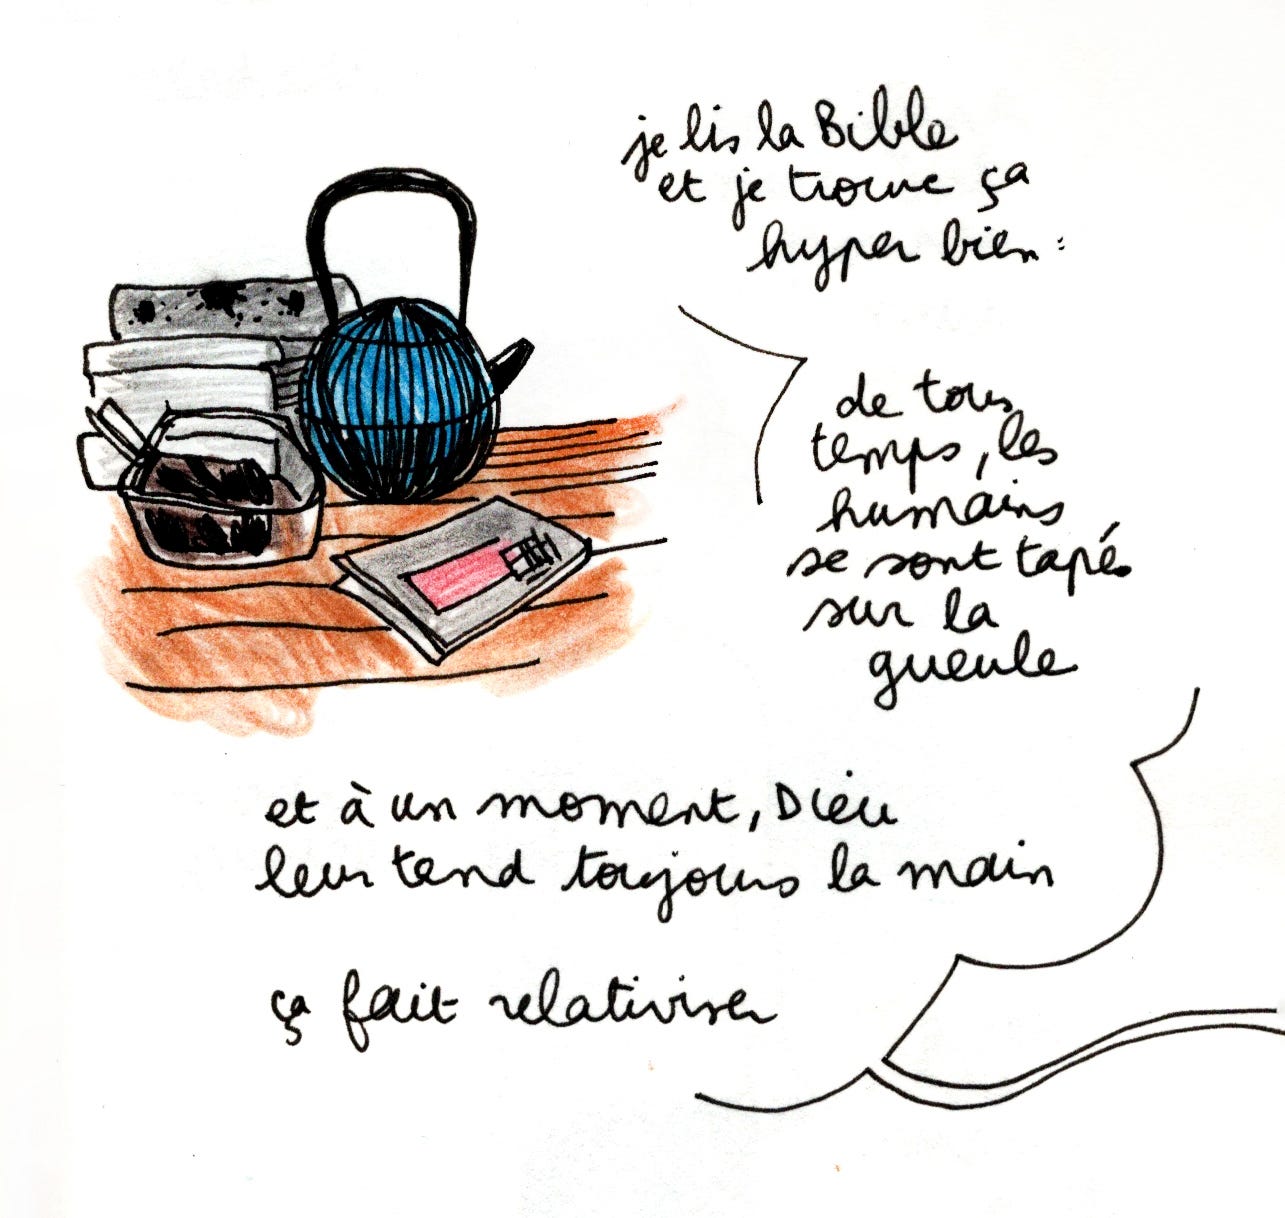 je lis la Bible
et je trouve ça
hyper bien :
de tous
temps, les
humains
se sont tapés
sur la
gueule
et à un moment, Dieu
leur tend toujours la main
ça fait relativiser